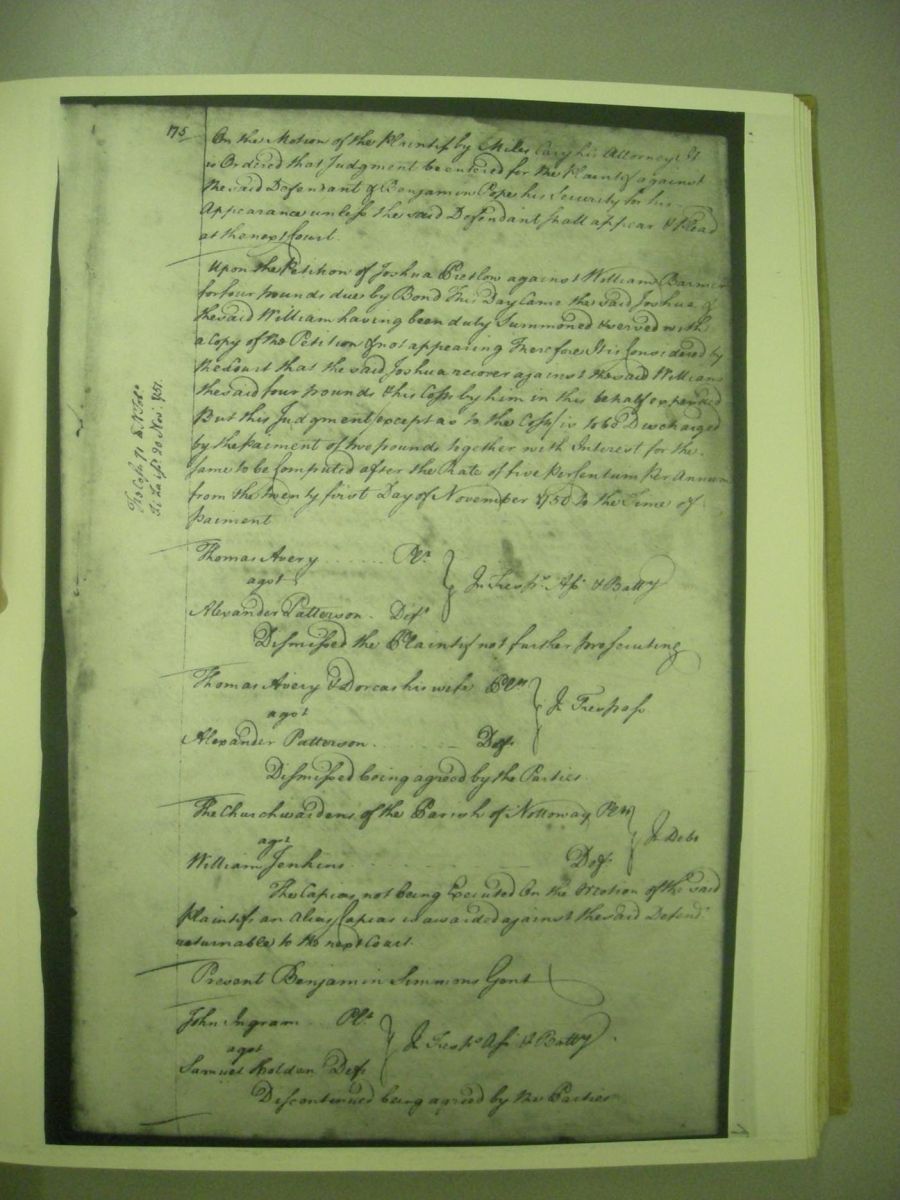 175
On the Motion of the Plaintif by Miles Cary his Attorney It
is Ordered that Judgment be entered for the Plaintif against
the said Defendant & Benjamin Pope his Security for his
Appearance unless the said Defendant shall appear & plead
at the next Court.
Upon the Petition of Joshua Pretlow against William Barmer
for four pounds due by Bond This Day Came the said Joshua &
the said William having been duly Summoned & served with
a Copy of the Petition & not appearing Therefore It is Considered by
the Court that the said Joshua recover against the said William
the said four pounds & his Costs by him in this behalf expended
But this Judgment (except as to the Costs) is to be Discharged
by the Paiment of two pounds together with Interest for the
same to be Computed after the Rate of five per Centum Per Annum
from the twenty first Day of November 1750 to the Time of
Paiment
Thomas Avery Plt.
agst
Alexander Patterson Deft
In Tresps. Ass. & Batty
Dismissed the Plaintif not further prosecuting
Thomas Avery & Dorcas his wife Plts
agst
Alexander Patterson Deft
In Trespass
Dismissed being agreed by the Parties
The Churchwardens of the Parish of Nottoway Plts
agst
William Jenkins Deft
In Debt
The Capias not being Executed On the Motion of the said
Plaintifs an Alias Capias is awarded against the said Defendt
returnable to the next Court.
Present Benjamin Simmons Gent
John Ingram Plt
agst
Samuel Holden Deft
In Tresps. Ass. & Batty
Discontinued being agreed by the Parties